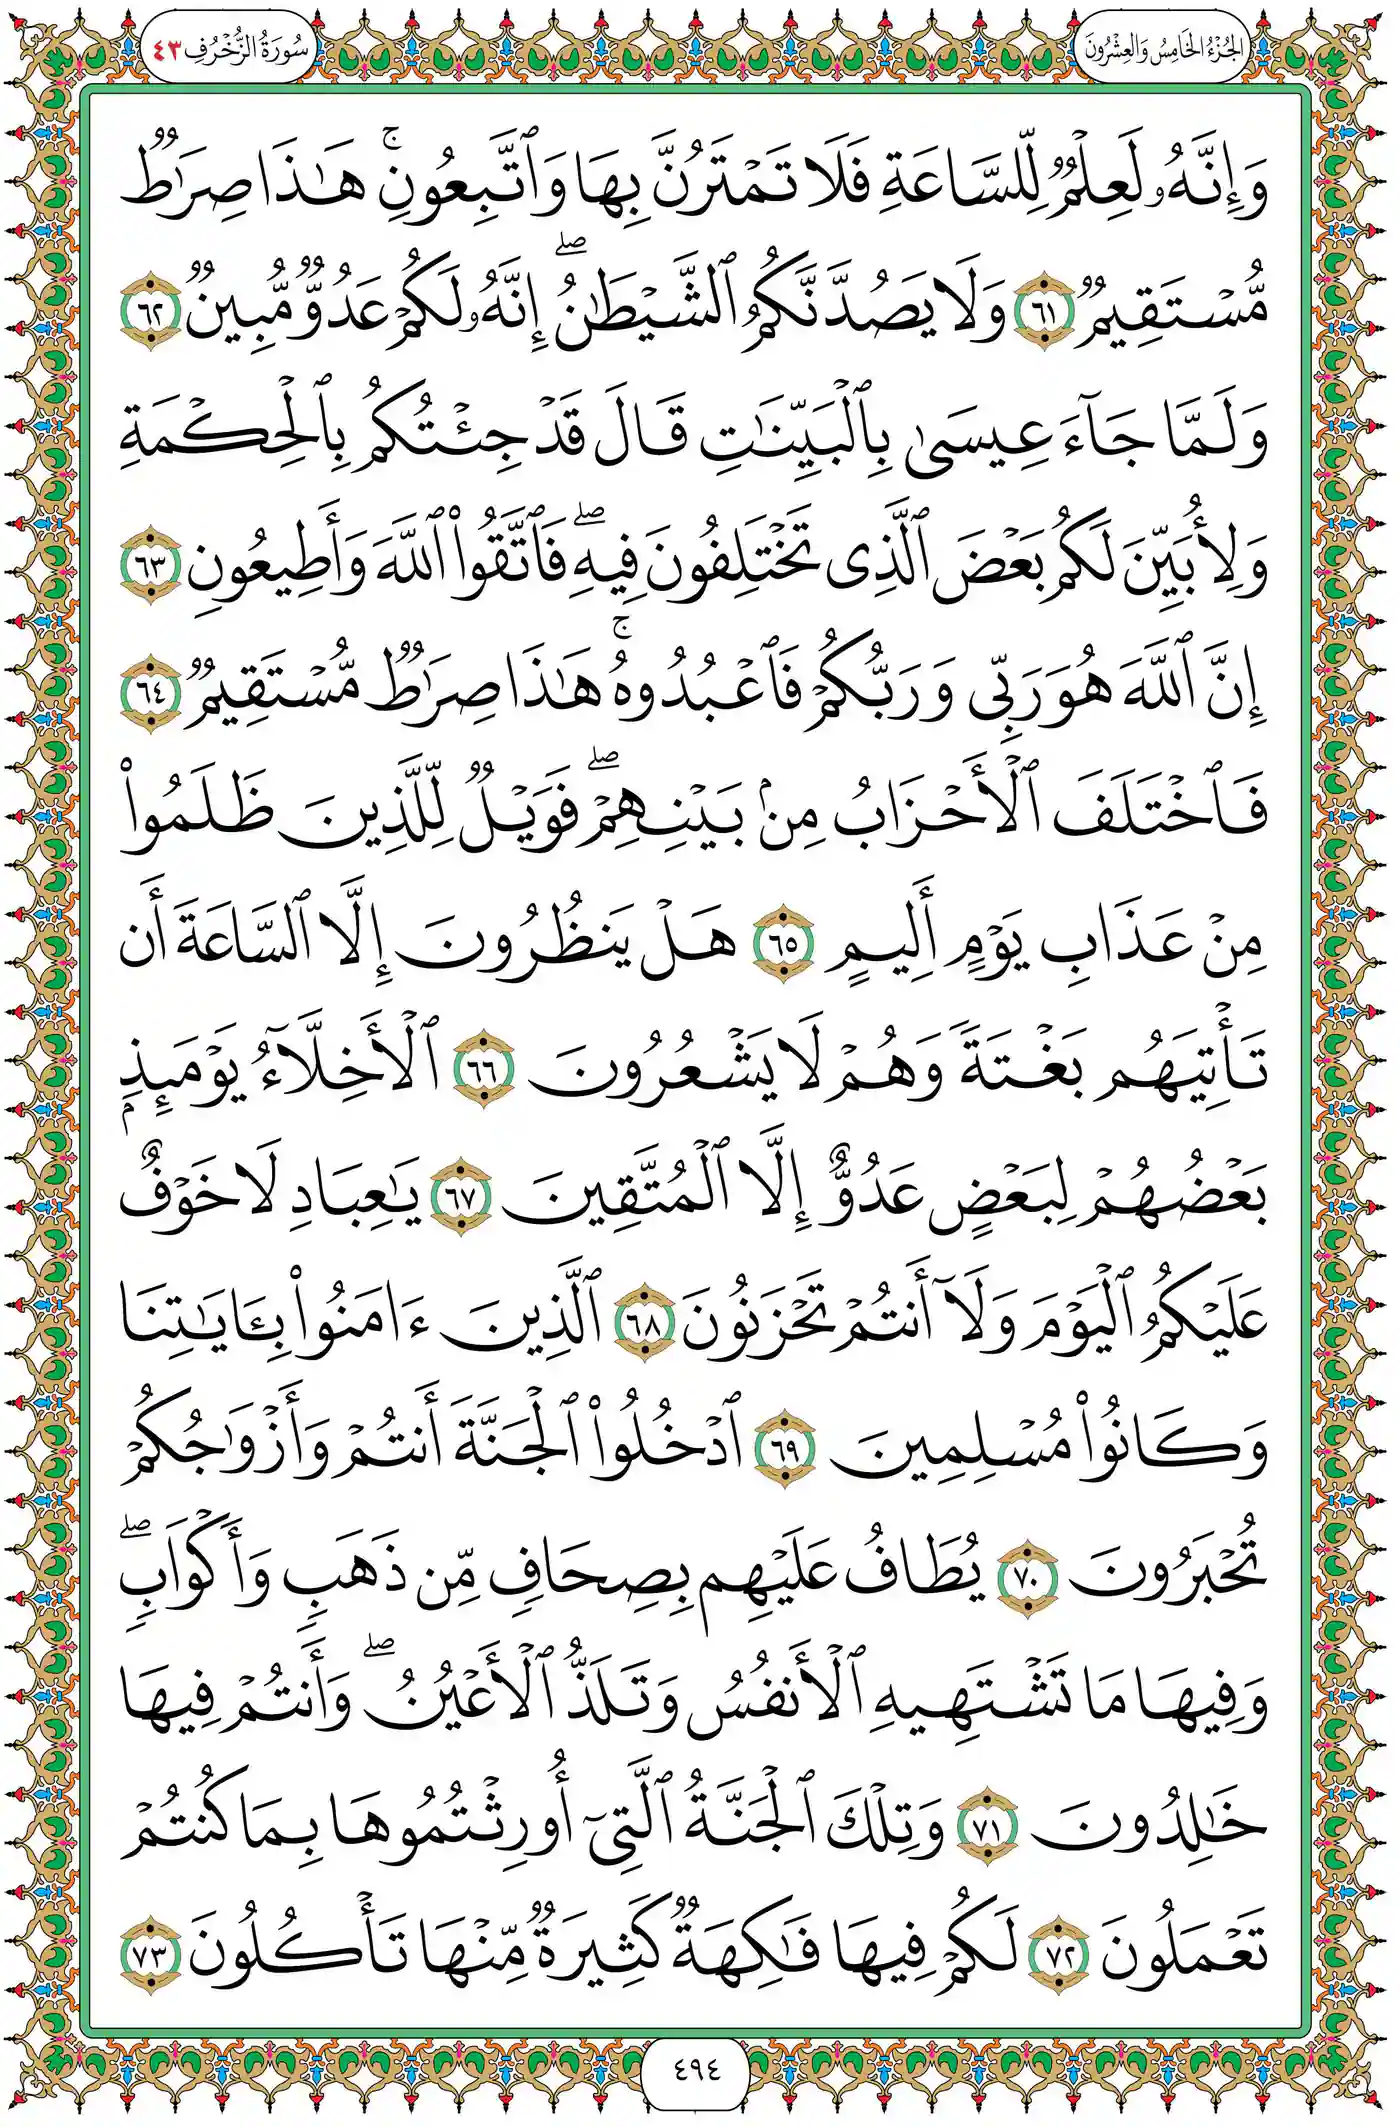 الجزء الخامس والعشرون
سورة الزخرف ٤٣
وَإِنَّهُۥ لَعِلْمٌ لِّلسَّاعَةِ فَلَا تَمْتَرُنَّ بِهَا وَٱتَّبِعُونِ ۚ هَـٰذَا صِرَٰطٌ
مُّسْتَقِيمٌ ٦١ وَلَا يَصُدَّنَّكُمُ ٱلشَّيْطَـٰنُ ۖ إِنَّهُۥ لَكُمْ عَدُوٌّ مُّبِينٌ ٦٢
وَلَمَّا جَآءَ عِيسَىٰ بِٱلْبَيِّنَـٰتِ قَالَ قَدْ جِئْتُكُم بِٱلْحِكْمَةِ
وَلِأُبَيِّنَ لَكُم بَعْضَ ٱلَّذِى تَخْتَلِفُونَ فِيهِ ۖ فَٱتَّقُوا۟ ٱللَّهَ وَأَطِيعُونِ ٦٣
إِنَّ ٱللَّهَ هُوَ رَبِّى وَرَبُّكُمْ فَٱعْبُدُوهُ ۚ هَـٰذَا صِرَٰطٌ مُّسْتَقِيمٌ ٦٤
فَٱخْتَلَفَ ٱلْأَحْزَابُ مِنۢ بَيْنِهِمْ ۖ فَوَيْلٌ لِّلَّذِينَ ظَلَمُوا۟
مِنْ عَذَابِ يَوْمٍ أَلِيمٍ ٦٥ هَلْ يَنظُرُونَ إِلَّا ٱلسَّاعَةَ أَن
تَأْتِيَهُم بَغْتَةً وَهُمْ لَا يَشْعُرُونَ ٦٦ ٱلْأَخِلَّآءُ يَوْمَئِذٍۭ
بَعْضُهُمْ لِبَعْضٍ عَدُوٌّ إِلَّا ٱلْمُتَّقِينَ ٦٧ يَـٰعِبَادِ لَا خَوْفٌ
عَلَيْكُمُ ٱلْيَوْمَ وَلَآ أَنتُمْ تَحْزَنُونَ ٦٨ ٱلَّذِينَ ءَامَنُوا۟ بِـَٔايَـٰتِنَا
وَكَانُوا۟ مُسْلِمِينَ ٦٩ ٱدْخُلُوا۟ ٱلْجَنَّةَ أَنتُمْ وَأَزْوَٰجُكُمْ
تُحْبَرُونَ ٧٠ يُطَافُ عَلَيْهِم بِصِحَافٍ مِّن ذَهَبٍ وَأَكْوَابٍ ۖ
وَفِيهَا مَا تَشْتَهِيهِ ٱلْأَنفُسُ وَتَلَذُّ ٱلْأَعْيُنُ ۖ وَأَنتُمْ فِيهَا
خَـٰلِدُونَ ٧١ وَتِلْكَ ٱلْجَنَّةُ ٱلَّتِىٓ أُورِثْتُمُوهَا بِمَا كُنتُمْ
تَعْمَلُونَ ٧٢ لَكُمْ فِيهَا فَـٰكِهَةٌ كَثِيرَةٌ مِّنْهَا تَأْكُلُونَ ٧٣
٤٩٤